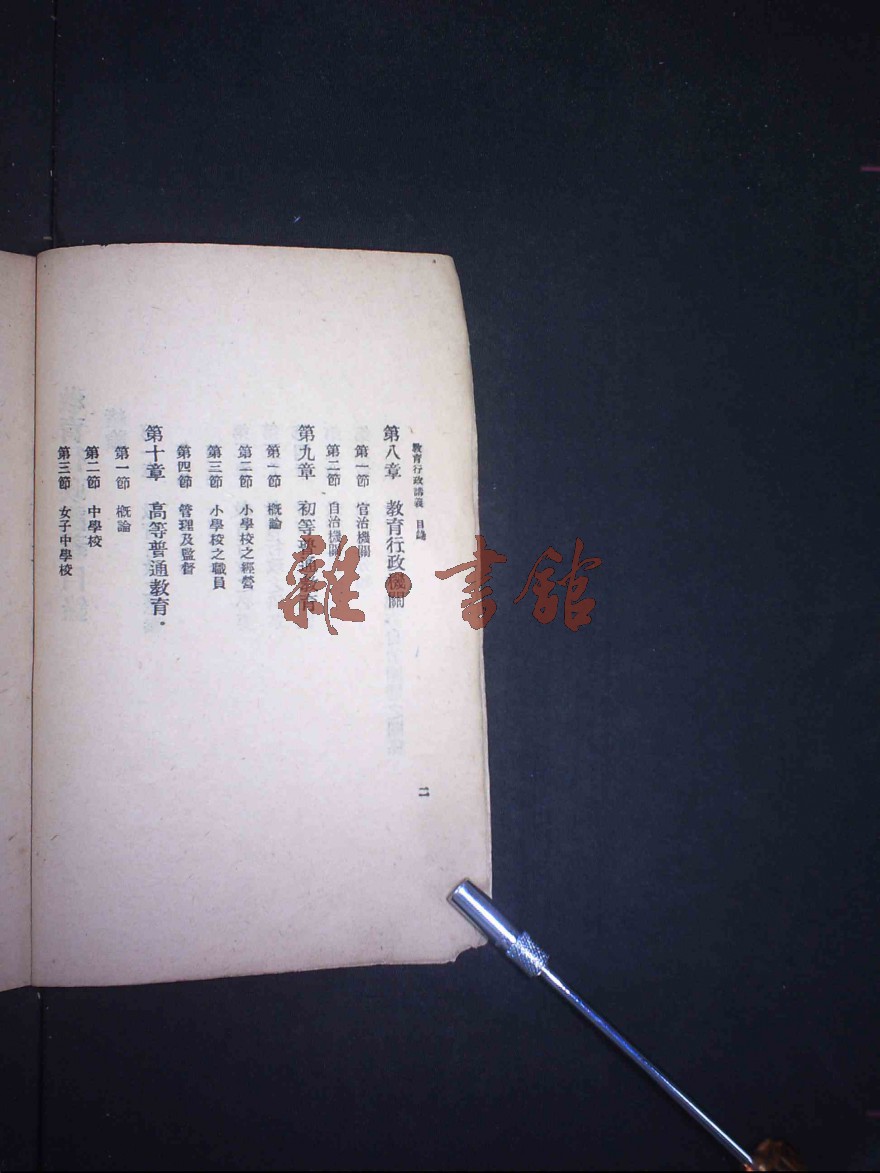 教育行政講義　目錄
第八章　教育行政機關
第一節　官治機關
第二節　自治機關
第九章　初等普通教育
第一節　槪論
第二節　小學校之經營
第三節　小學校之職員
第四節　管理及監督
第十章　高等普通教育．
第一節　槪論
第二節　中學校
第三節　女子中學校
二
雜·書館